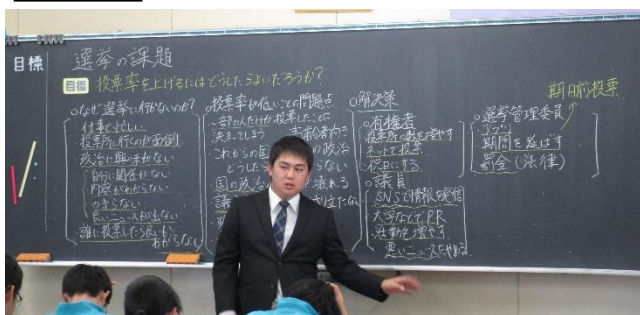 目標
選挙の課題
目標 投票率を上げるにはどうしたらよいだろうか?
○なぜ選挙に行かないのか?
仕事で忙しい
投票所に行くのが面倒
政治に興味がない
自分に関係がない
内容がわからない
つまらない
良いニュースが出ない
誰に投票したら良いか
わからない
○投票率が低いことの問題点
一部の人だけが投票したことに
決まってしまう
高齢者向き
これからの国
の政治
どうしたら
らない
国の政治
壊れる
立たない
○解決策
○有権者
投票所の数を増やす
ネットで投票
役にする
○議員
SNSで情報を発信
大学などでPR
活動を増やす
悪いニュースをやめる
期日前投票
○選挙管理委員
アプリ
期間を延ばす
罰金(法律)